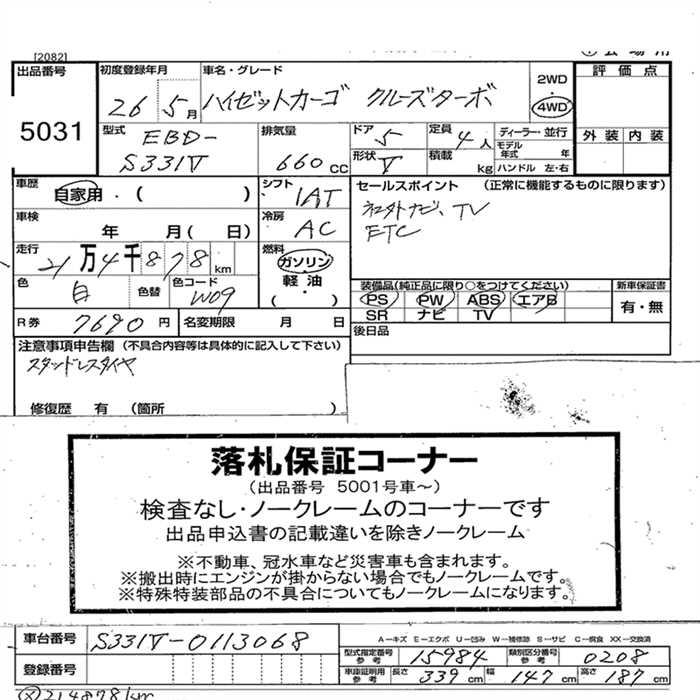 [2082]
出品番号 初度登録年月 車名・グレード 2WD 評価点
5031 26 5月 ハイゼットカーゴ クルーズターボ 4WD
型式 EBD- 排気量 ドア 5 定員 4人 ディーラー・並行 外装 内装
モデル年式 年
S331V 660cc 形状 V 積載 kg ハンドル 左・右
車歴 自家用・( ) シフト IAT セールスポイント (正常に機能するものに限ります)
車検 年 月( 日) 冷房 AC TV
ETC
走行 21万4千878km 燃料 ガソリン
軽油
( )
色 白 色替 色コード W09 装備品(純正品に限り○をつけてください) 新車保証書
PS PW ABS エアB 有・無
SR ナビ TV
R券 7690円 名変期限 月 日 後日品
注意事項申告欄 (不具合内容等は具体的に記入して下さい)
スタッドレスタイヤ
修復歴 有 (箇所 )
落札保証コーナー
(出品番号 5001号車~)
検査なし・ノークレームのコーナーです
出品申込書の記載違いを除きノークレーム
※不動車、冠水車など災害車も含まれます。
※搬出時にエンジンが掛からない場合でもノークレームです。
※特殊特装部品の不具合についてもノークレームになります。
車台番号 S331V-0113068
A-キズ E-エクボ U-凹み W-補修跡 S-サビ C-腐食 XX-交換済
型式指定番号 参考 15984 類別区分番号 参考 0208
登録番号 車庫証明用 参考 長さ 339cm 幅 147cm 高さ 187cm
214878km